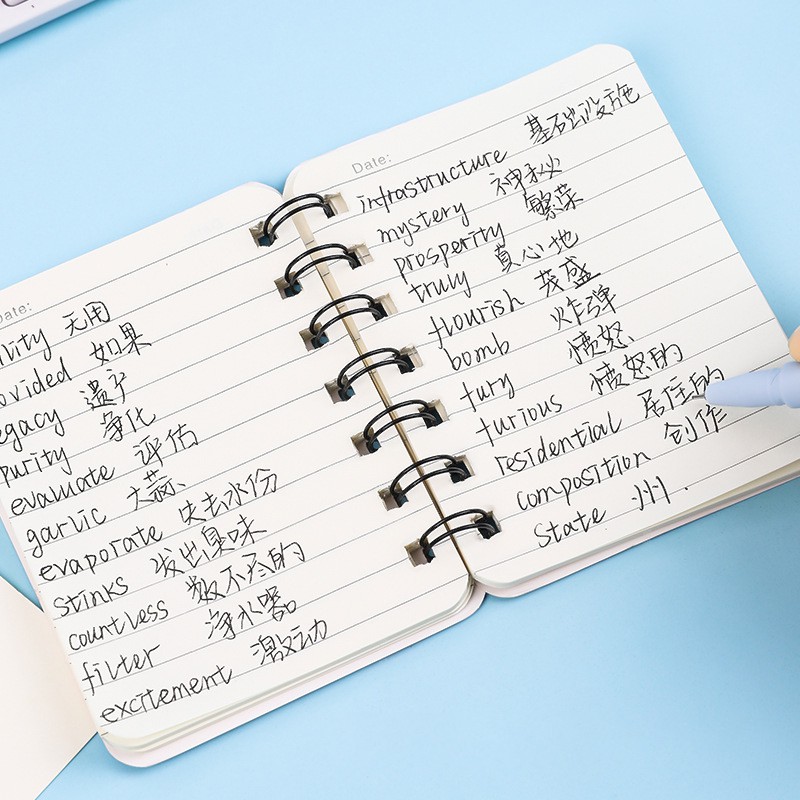 Date:
无用
如果
遗产
purity 净化
evaluate 评估
garlic 大蒜
evaporate 失去水份
stinks 发出臭味
countless 数不尽的
filter 净水器
excitement 激动
Date:
infrastructure 基础设施
mystery 神秘
prosperity 繁荣
truly 真心地
flourish 茂盛
bomb 炸弹
fury 愤怒
furious 愤怒的
residential 居住的
composition 创作
State 州.